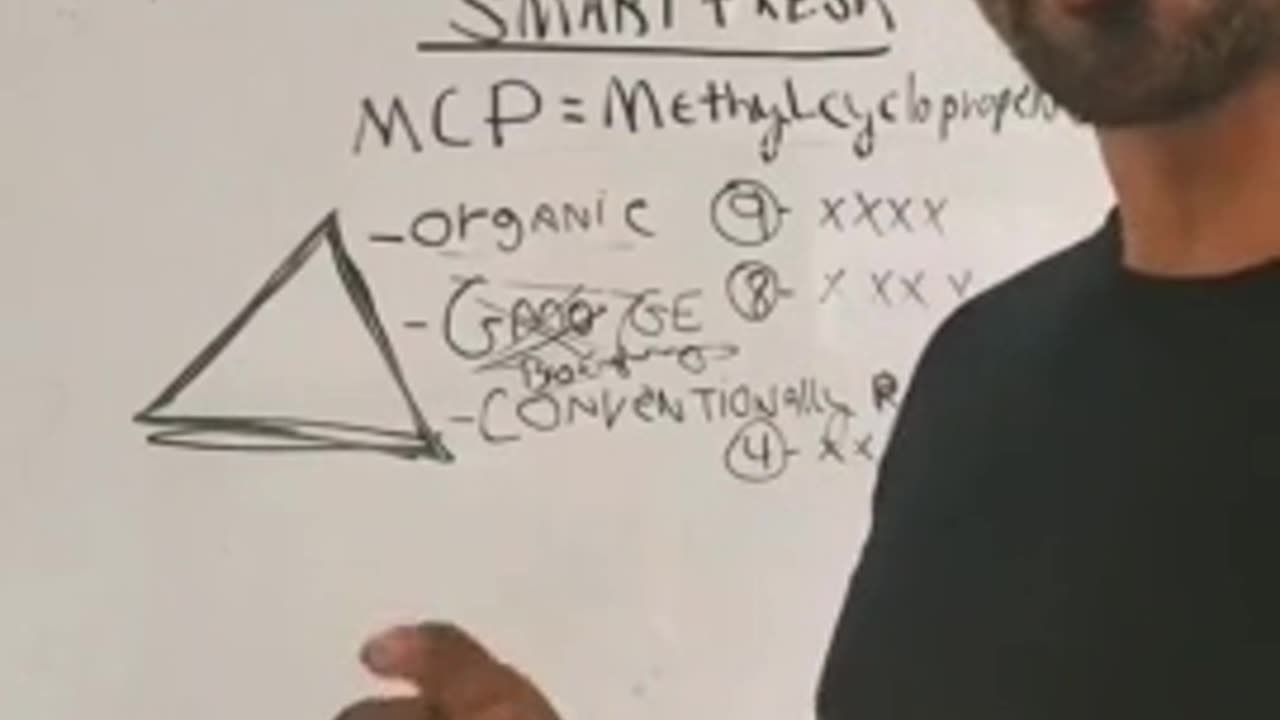 SMARTFRESH
MCP = Methylcyclopropen
- ORGANIC ⑨- XXXX
- GE ⑧- X XX X
- CONVENTIONAlly R
④- XX